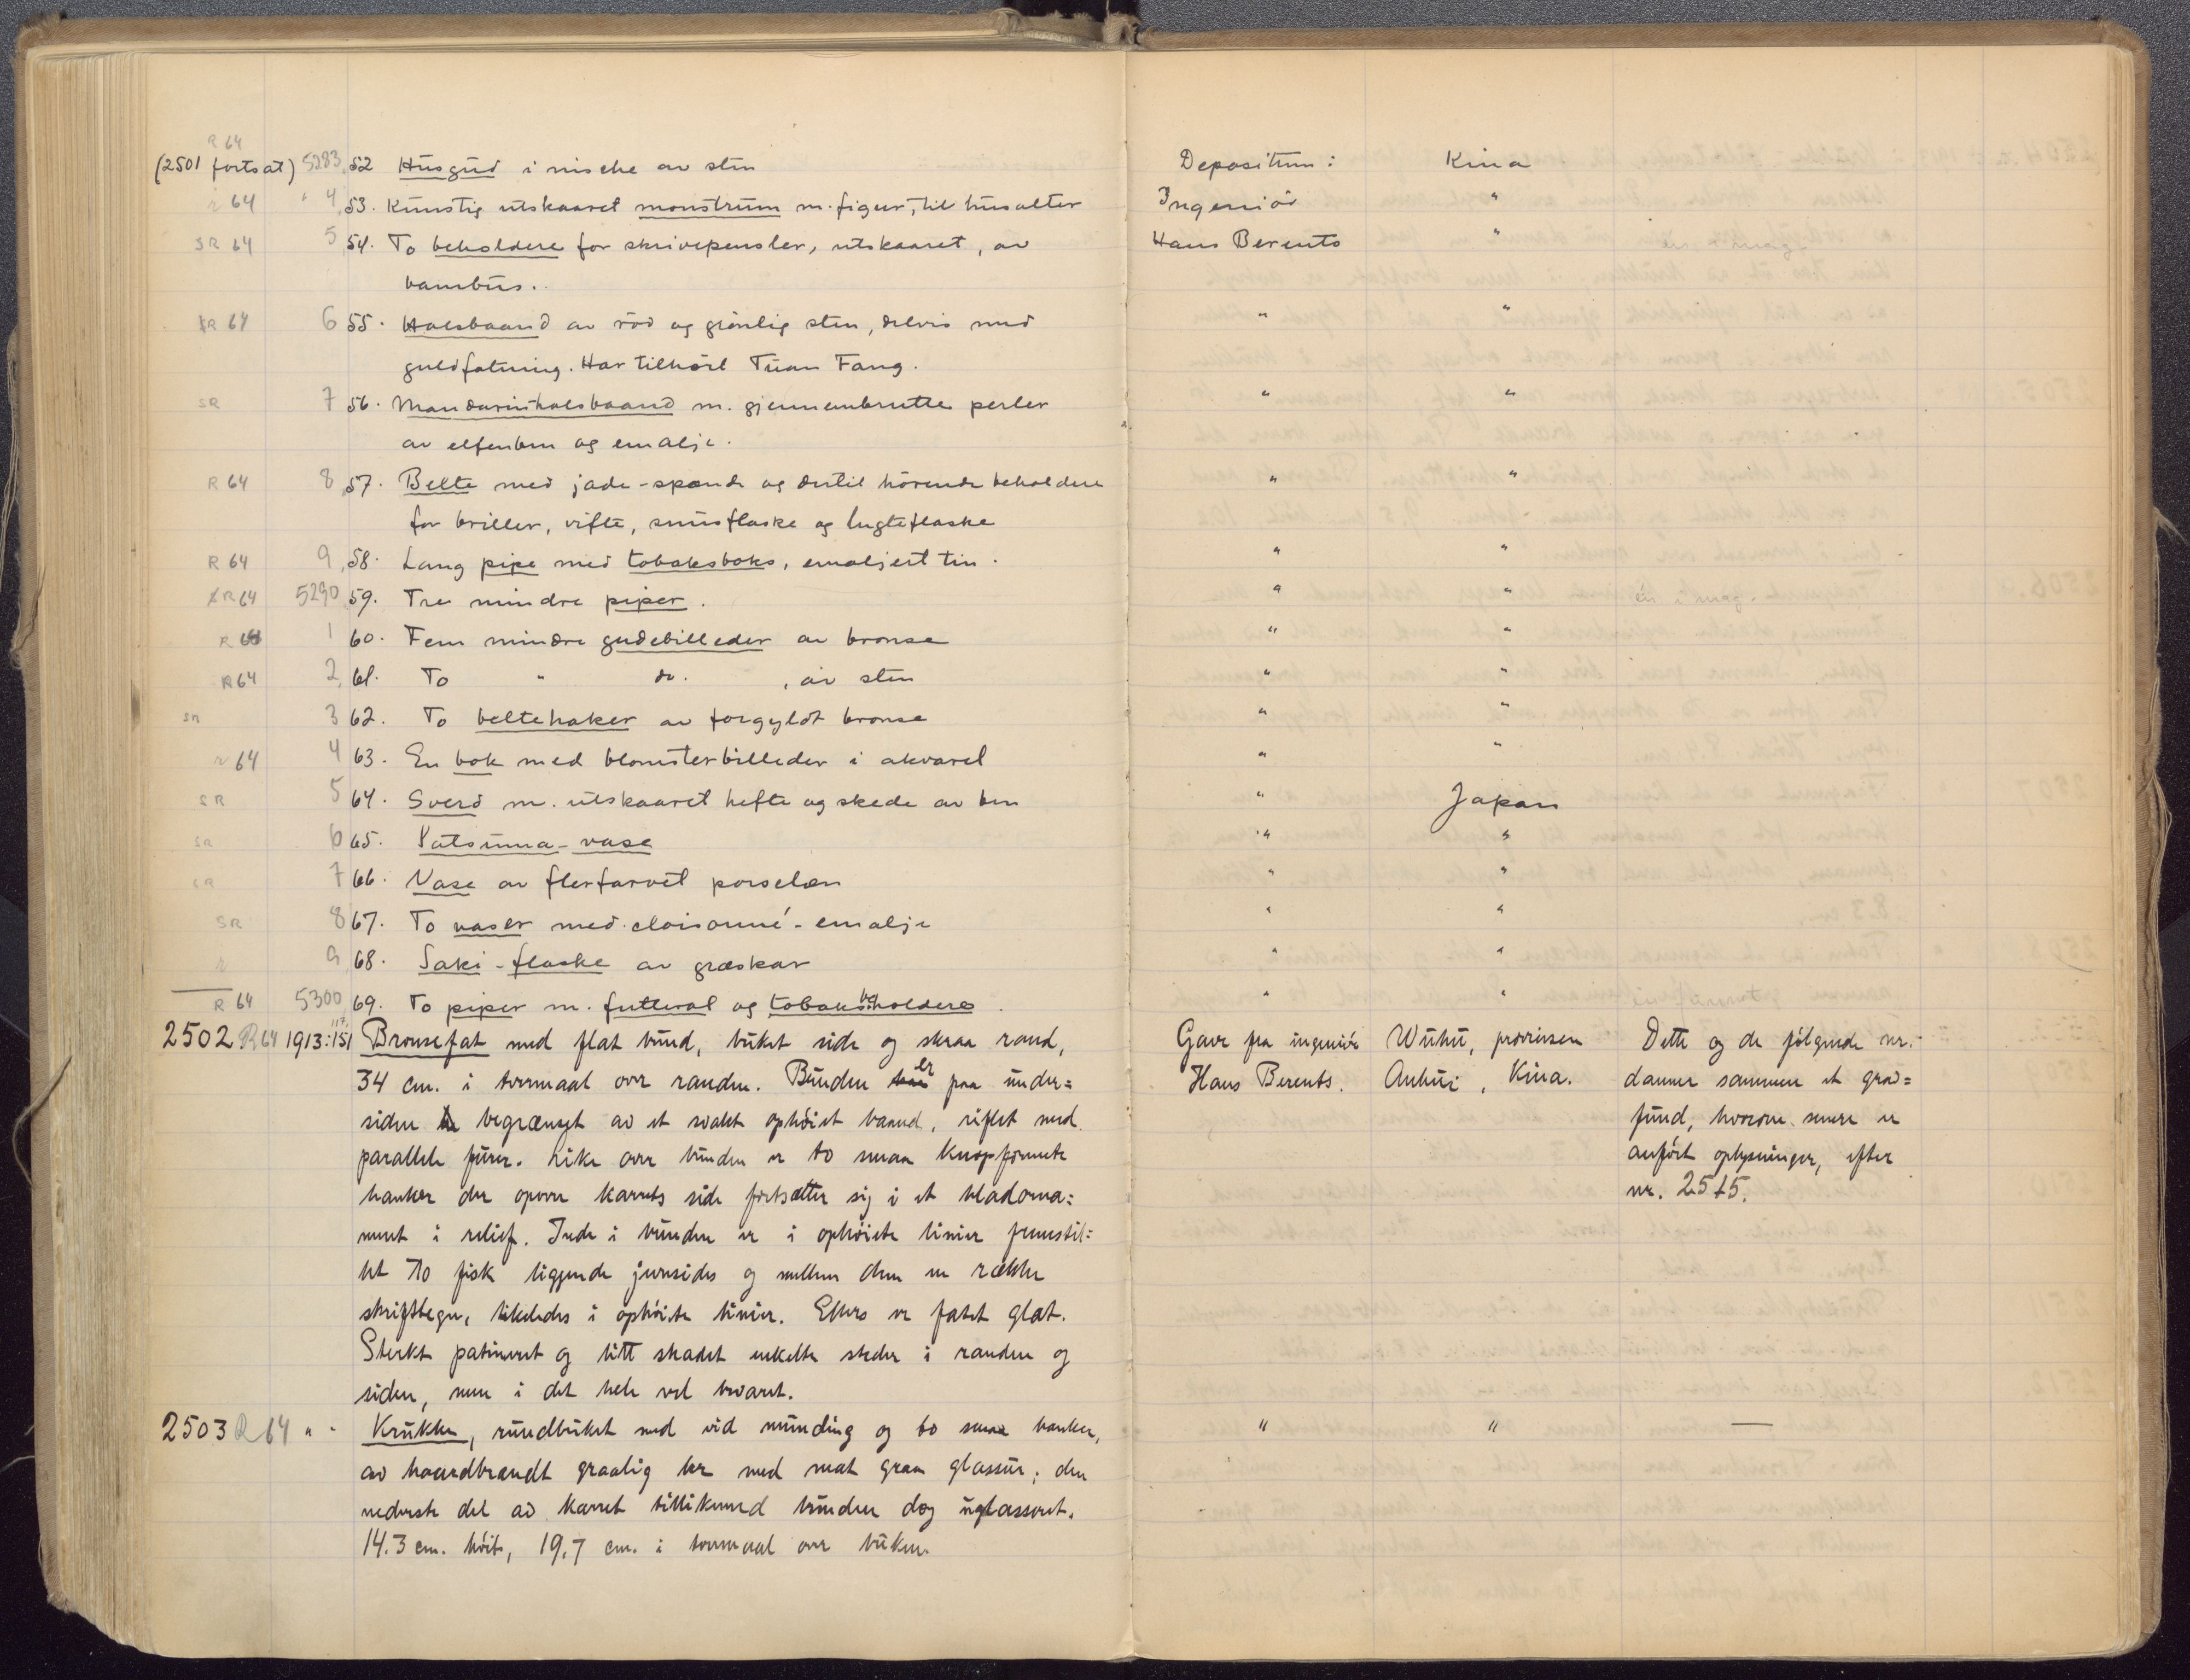 R 64
(2501 fortsat) 5283, 52 Husgud i nische av sten Depositum: Kina
r 64 " 4, 53. Kunstig utskaaret monstrum m. figur, til husalter Ingeniör "
SR 64 5 54. To beholdere for skrivepensler, utskaaret, av Hans Berents " en i mag.
bambus.
SR 64 6 55. Halsbaand av röd og grönlig sten, delvis med " "
guldfatning. Har tilhört Tuan Fang.
SR 7 56. Mandarinhalsbaand m. gjennembrutte perler " "
av elfenben og emalje.
R 64 8 57. Belte med jade-spænde og dertil hörende beholdere " "
for briller, vifte, snusflaske og lugteflaske
R 64 9, 58. Lang pipe med tobaksboks, emaljert tin. " "
R 64 5290 59. Tre mindre piper. " " én i mag.
R 64 1 60. Fem mindre gudebilleder av bronse " "
R 64 2, 61. To " do. , av sten " "
SR 3 62. To beltehaker av forgyldt bronse " "
r 64 4 63. En bok med blomsterbilleder i akvarel " "
SR 5 64. Sverd m. utskaaret hefte og skede av ben " Japan
SR 6 65. Satsuma-vase " "
SR 7 66. Vase av flerfarvet porselæn " "
SR 8 67. To vaser med cloisonné-emalje " "
r 9 68. Saki-flaske av græskar " "
R 64 5300 69. To piper m. futteral og tobaksbeholdere. " "
2502 R 64 1913:151 Bronsefat med flat bund, buket side og skraa rand, Gave fra ingeniör Wuhu, provinsen Dette og de fölgende nr.
34 cm. i tvermaal over randen. Bunden er paa under= Hans Berents. Anhui, Kina. danner sammen et grav=
siden begrænset av et svakt ophöiet baand, riflet med fund, hvorom senere er
parallele furer. Like over bunden er to smaa knopformete anfört oplysninger, efter
hanker der opover karrets side fortsætter sig i et bladorna= nr. 2515.
ment i relief. Inde i bunden er i ophöiete linier fremstil=
let to fisk liggende jevnsides og mellem dem en række
skrifttegn, likeledes i ophöiete linier. Ellers er fatet glat.
Sterkt patinert og litt skadet enkelte steder i randen og
siden, men i det hele vel bevaret.
2503 R 64 " " Krukke, rundbuket med vid munding og to smaa hanker, " " —
av haardbrændt graalig ler med mat graa glassur; den
nederste del av karret tillikemed bunden dog uglasseret.
14.3 cm. höit, 19,7 cm. i tvermaal over buken.